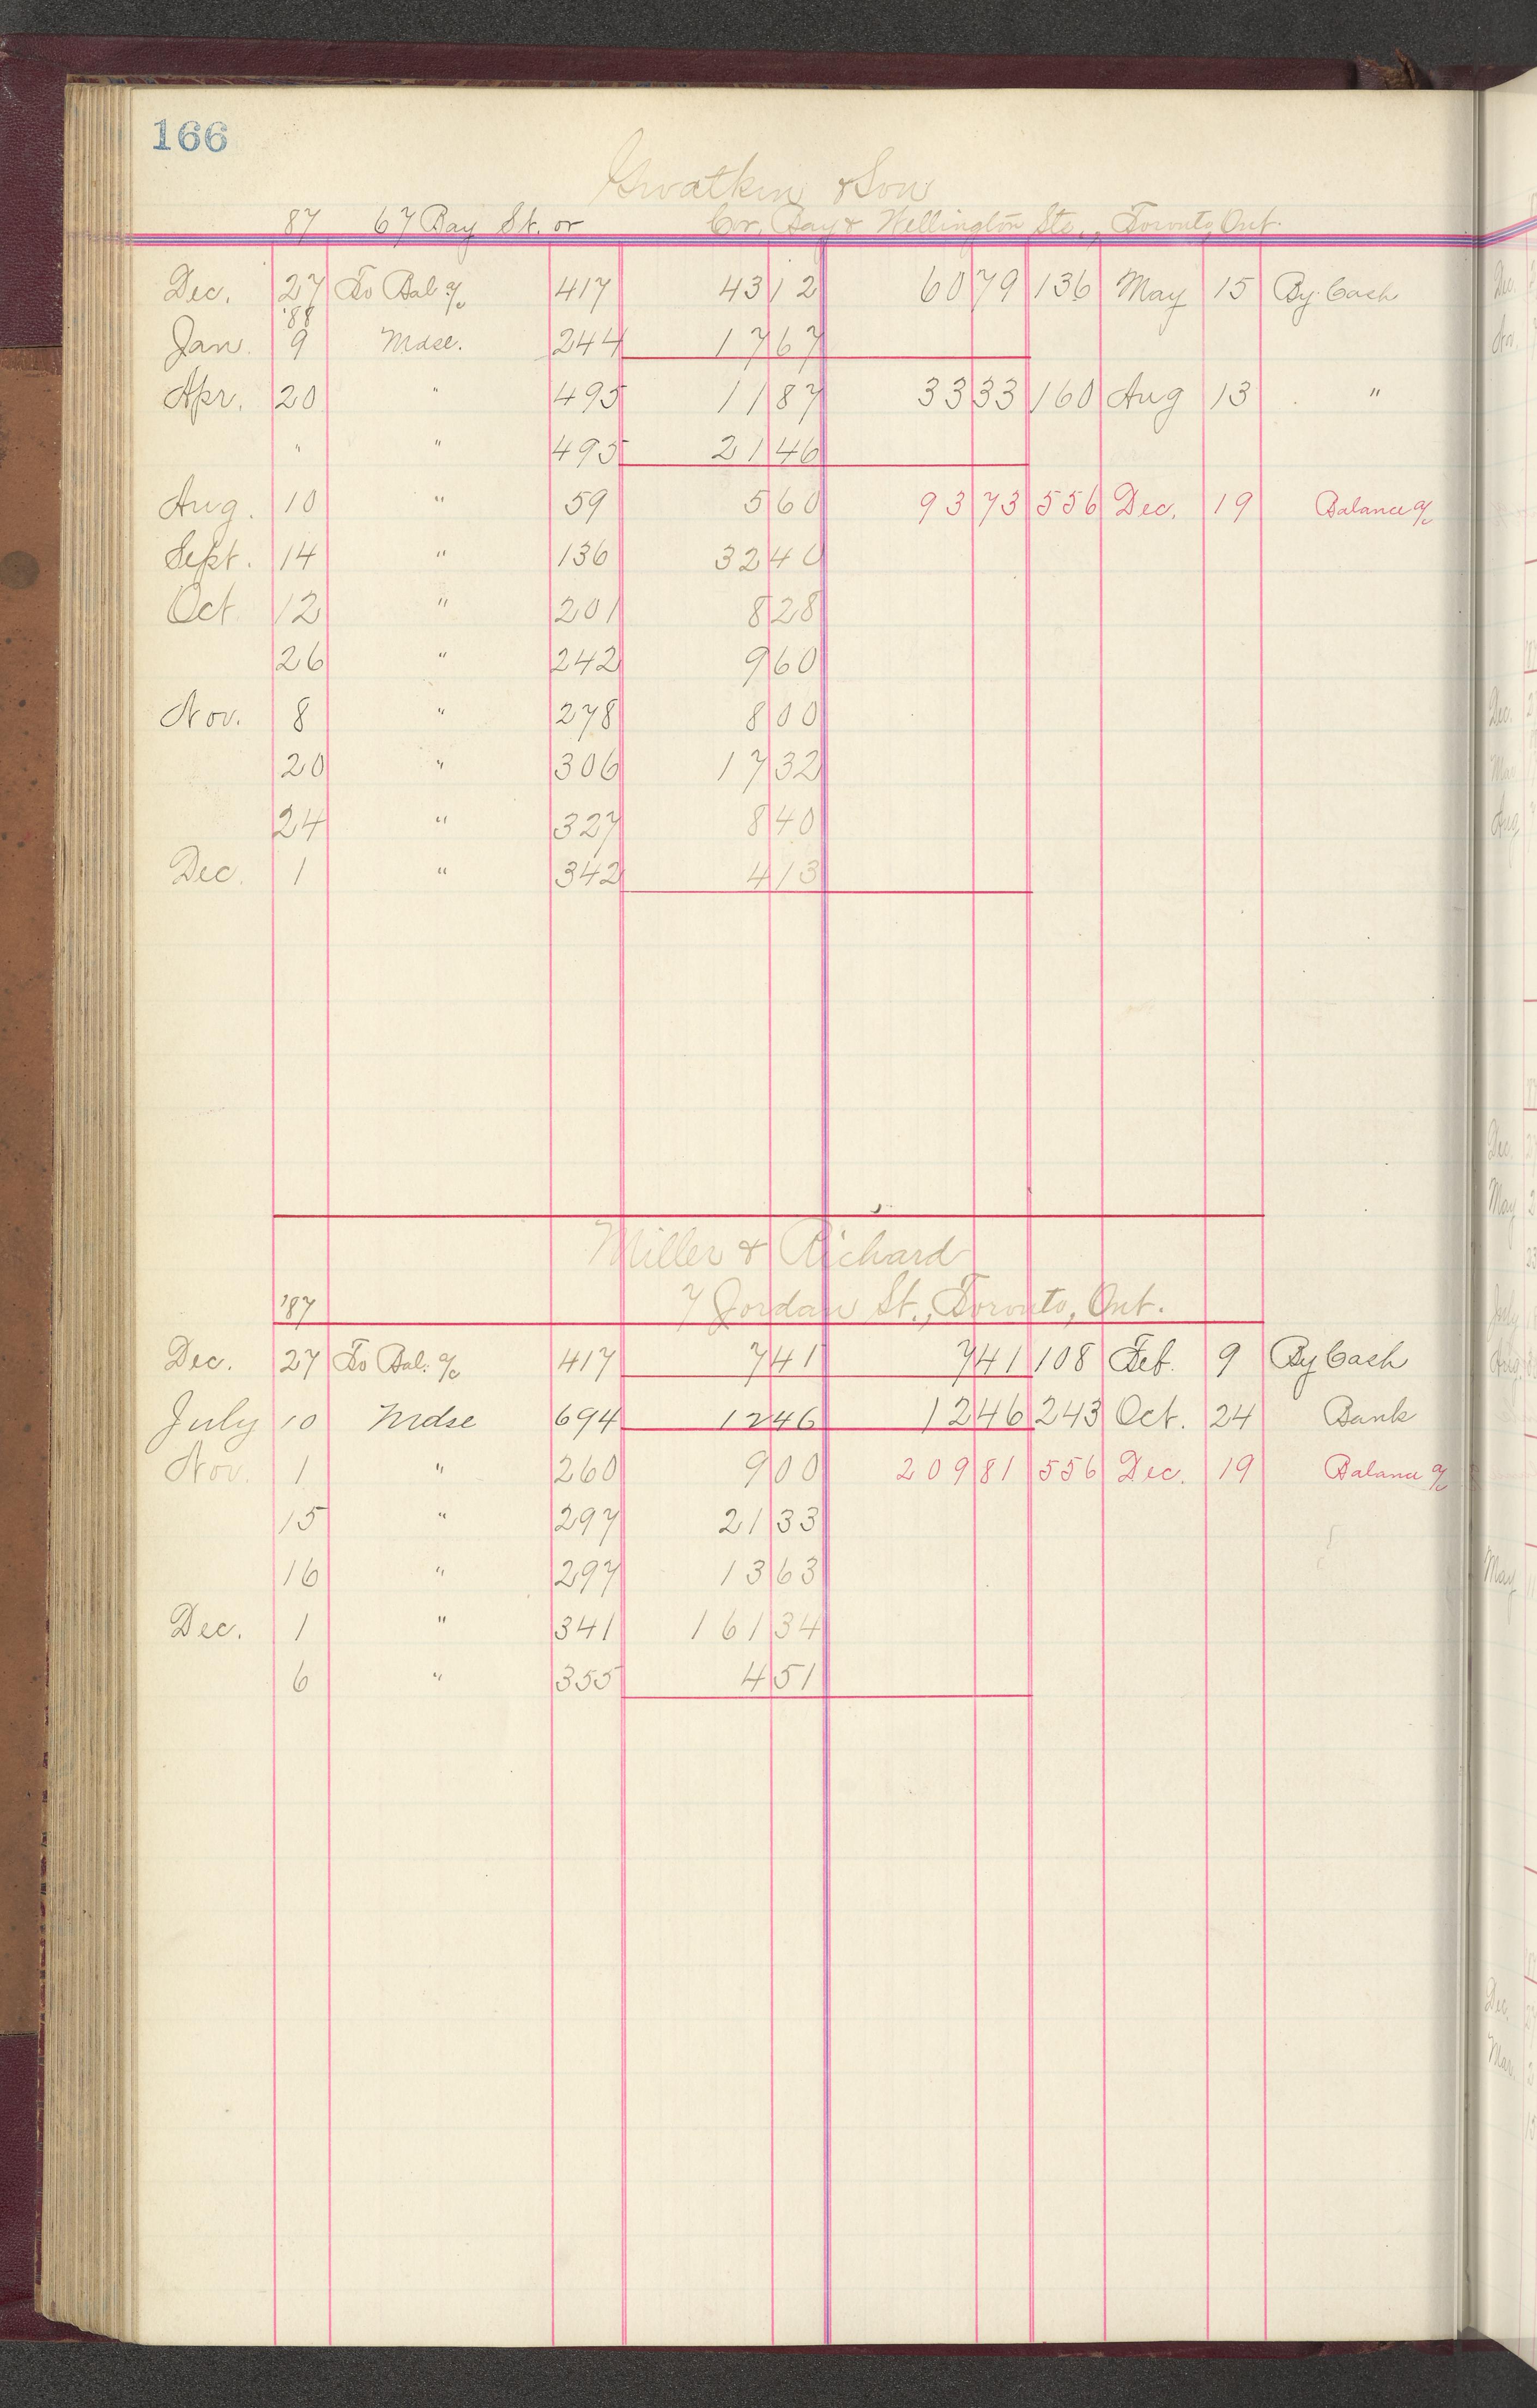 166
Gwatkin & Son
87 67 Bay St. or Cor. Bay & Wellington Sts., Toronto, Ont.
Dec. 27 To Bal a/c 417 43 12 60 79 136 May 15 By Cash
'88
Jan. 9 Mdse. 244 17 67
Apr. 20 " 495 11 87 33 33 160 Aug 13 "
" " 495 21 46
Aug. 10 " 59 5 60 93 73 556 Dec. 19 Balance a/c
Sept. 14 " 136 32 40
Oct 12 " 201 8 28
26 " 242 9 60
Nov. 8 " 278 8 00
20 " 306 17 32
24 " 327 8 40
Dec. 1 " 342 4 13
Miller & Richard
'87 7 Jordan St., Toronto, Ont.
Dec. 27 To Bal. a/c 417 7 41 7 41 108 Feb. 9 By Cash
July 10 Mdse 694 12 46 12 46 243 Oct. 24 Bank
Nov. 1 " 260 9 00 209 81 556 Dec. 19 Balance a/c
15 " 297 21 33
16 " 297 13 63
Dec. 1 " 341 161 34
6 " 355 4 51